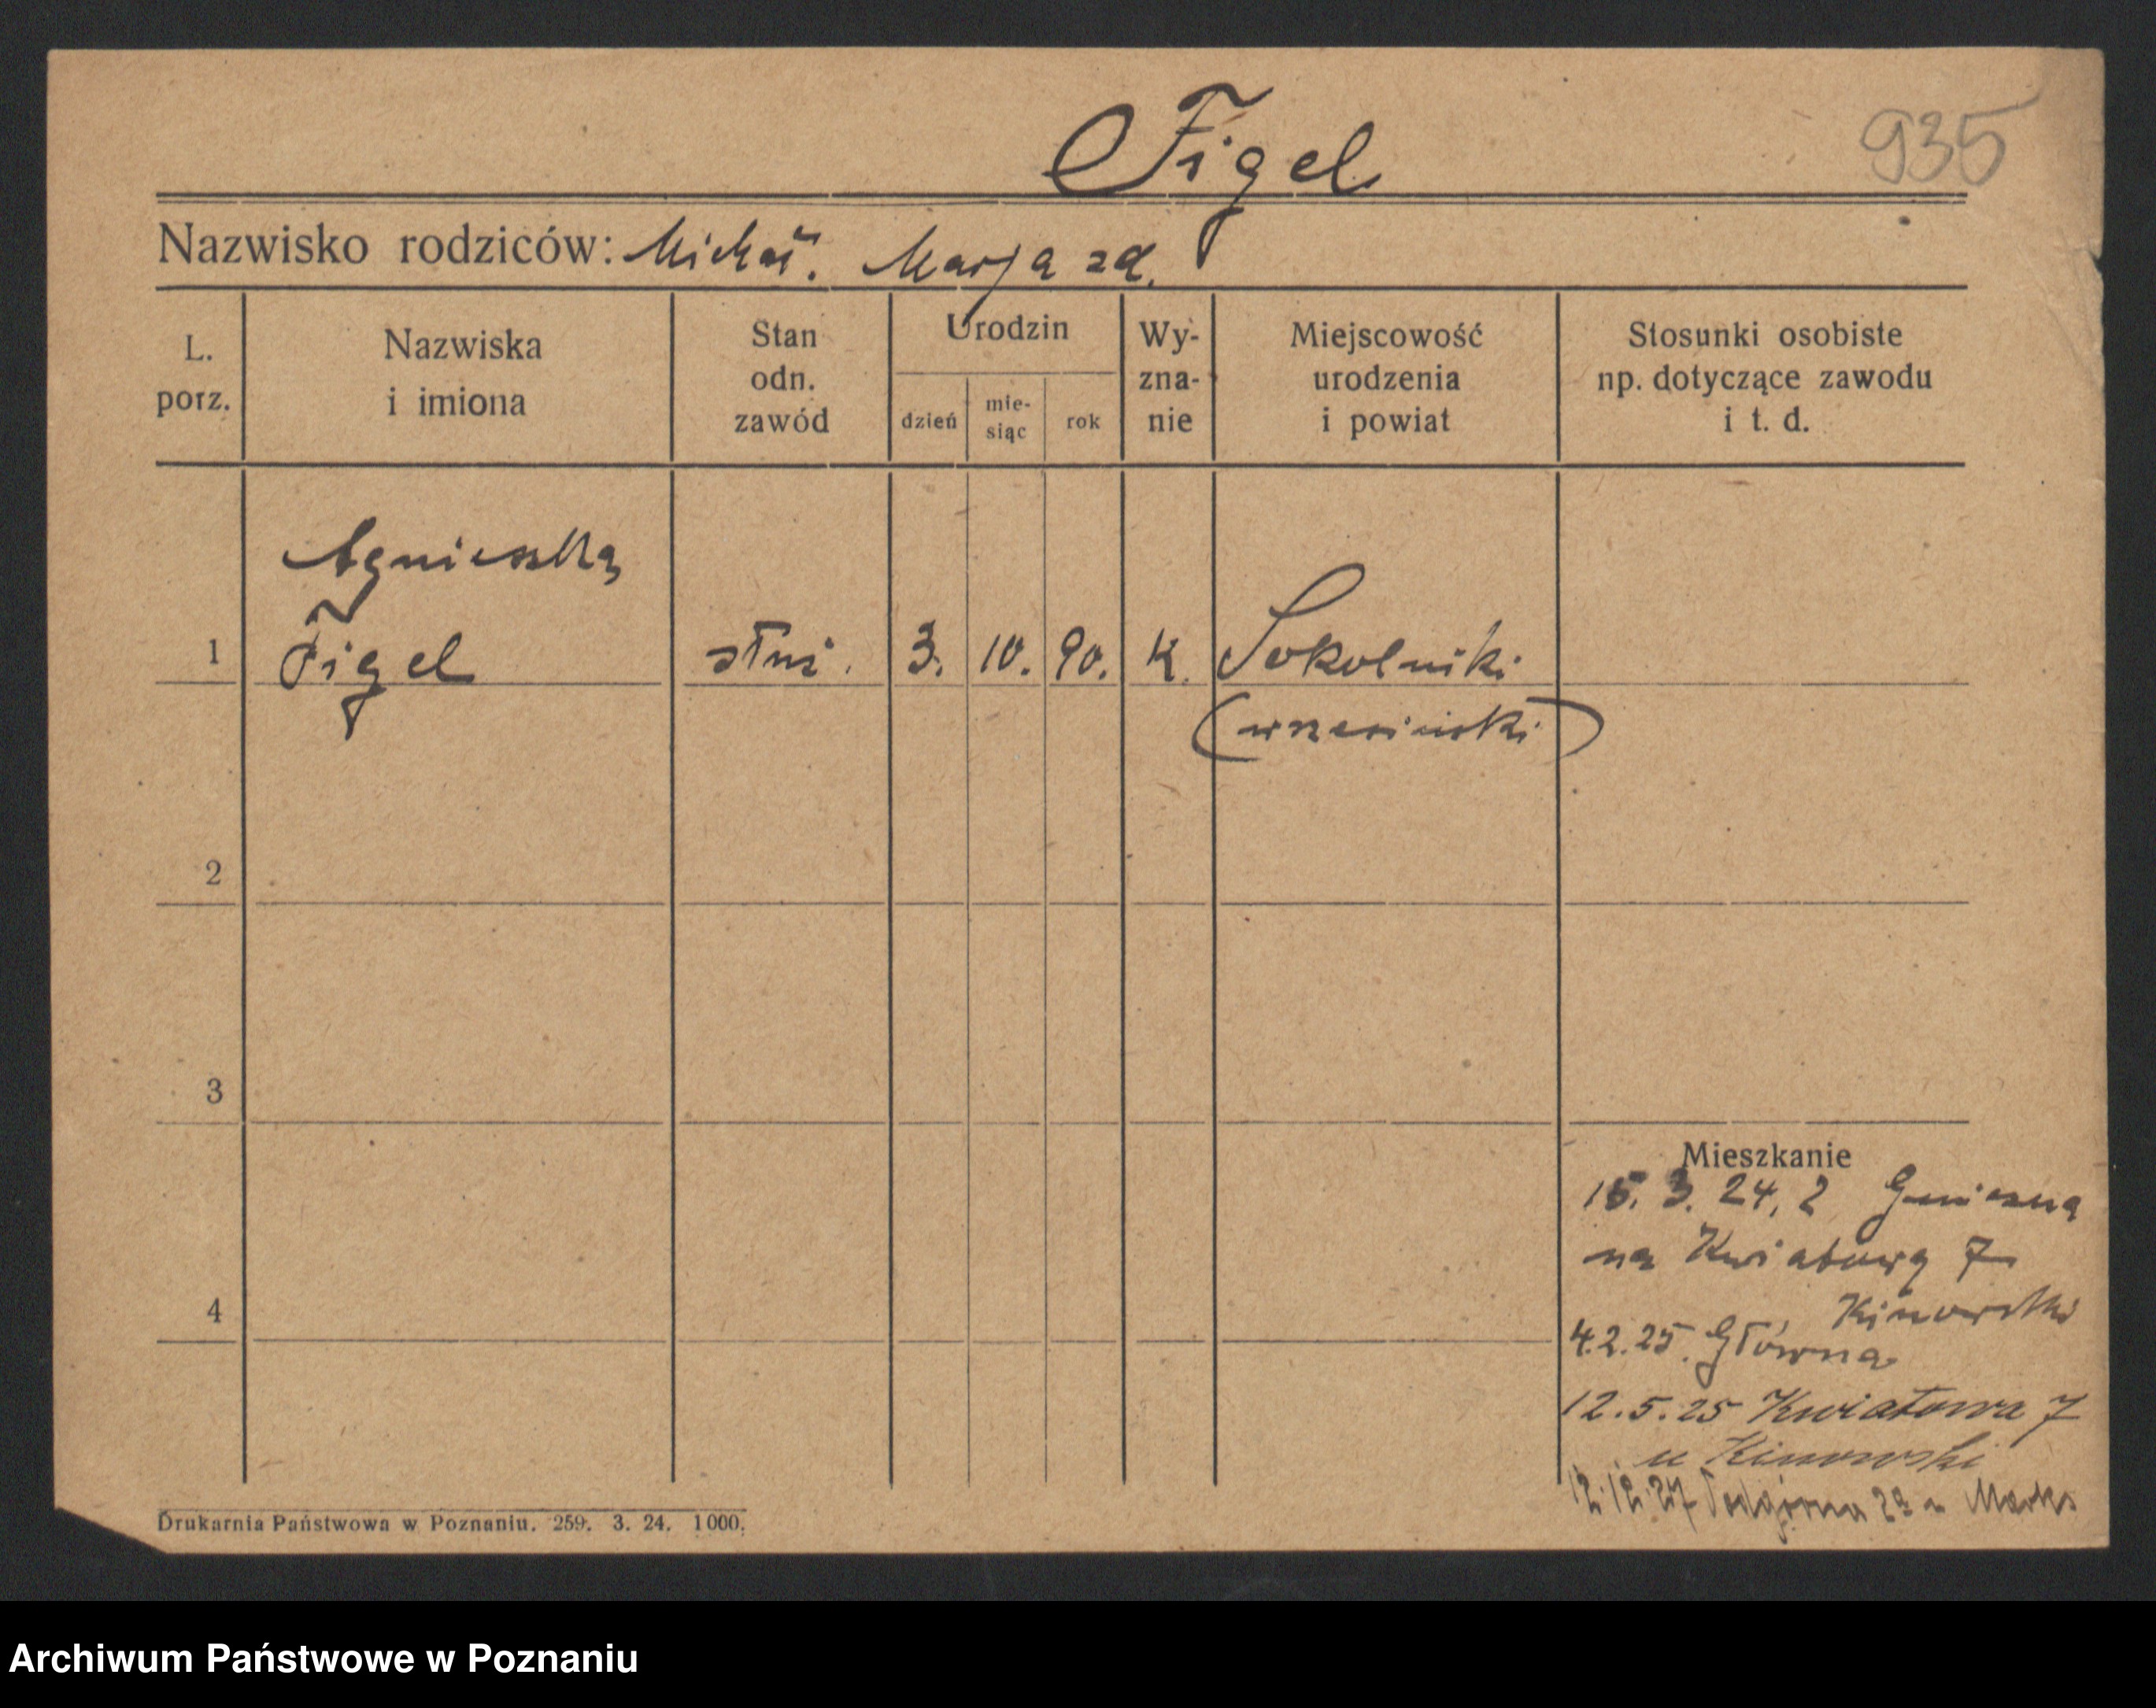 Figel
935
Nazwisko rodziców: Michał. Marja zd.
L. porz.
Nazwiska i imiona
Stan odn. zawód
Urodzin
dzień
mie-siąc
rok
Wy-zna-nie
Miejscowość urodzenia i powiat
Stosunki osobiste np. dotyczące zawodu i t. d.
Agnieszka
1 Figel służ. 3. 10. 90. K. Sokolniki
(wrzesiński)
2
3
Mieszkanie
15. 3. 24, z Gniezna
na Kwiatową 7
4
Kinowski
4.2.25. Główna
12.5.25 Kwiatowa 7
u Kinowski
12.12.27 Podgórna 2a u Marks
Drukarnia Państwowa w Poznaniu. 259. 3. 24. 1000.
Archiwum Państwowe w Poznaniu